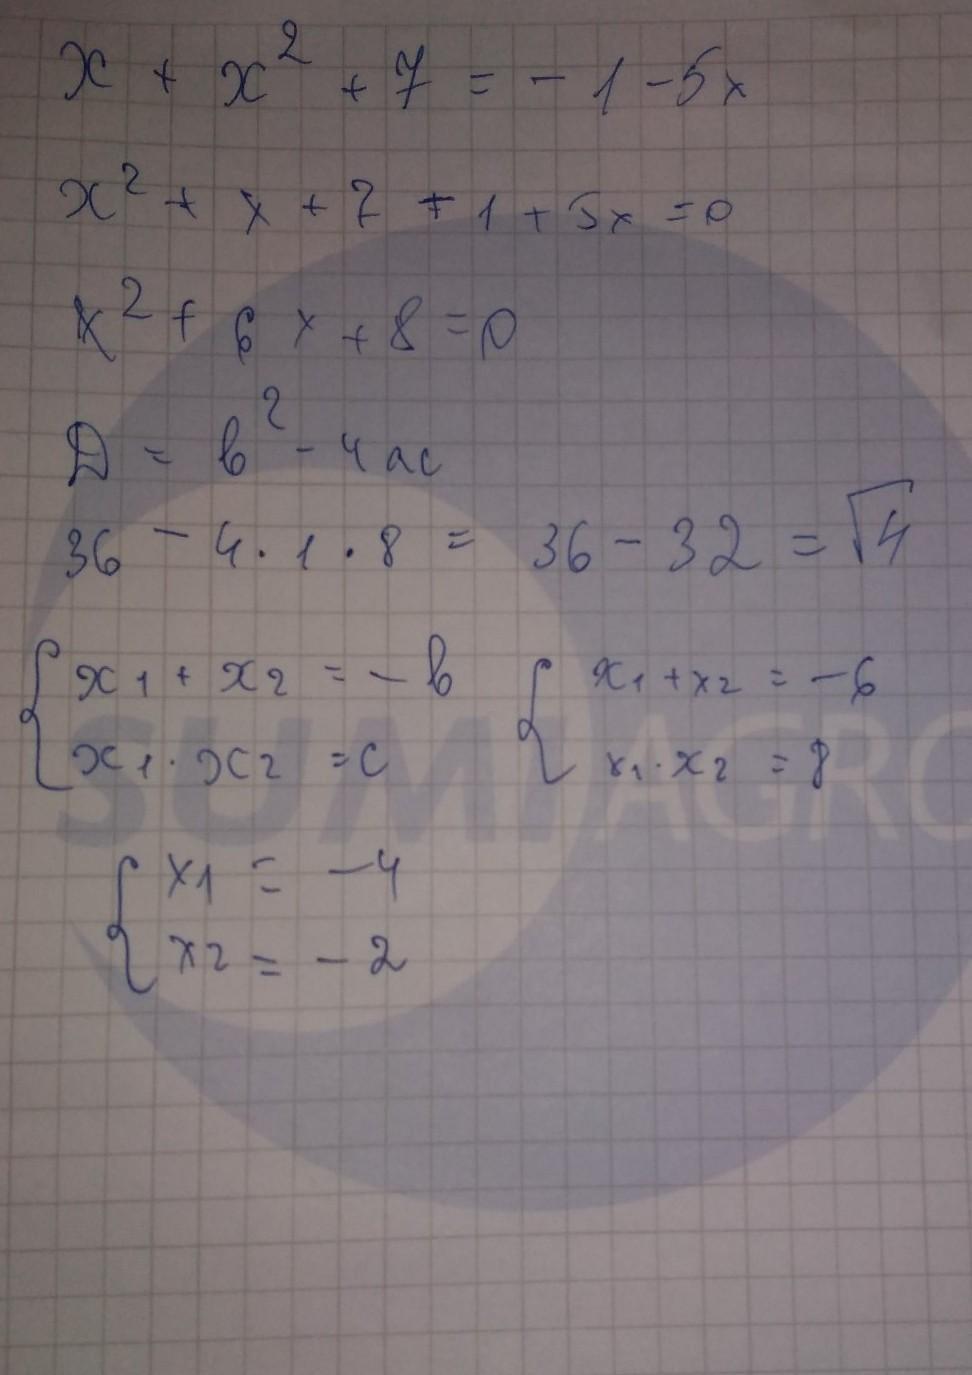 x + x² + 7 = - 1 - 5x
x² + x + 7 + 1 + 5x = 0
x² + 6x + 8 = 0
D = b² - 4ac
36 - 4 · 1 · 8 = 36 - 32 = √4
{ x1 + x2 = - b { x1 + x2 = - 6
x1 · x2 = c x1 · x2 = 8
SUMI AGRO
{ x1 = - 4
x2 = - 2